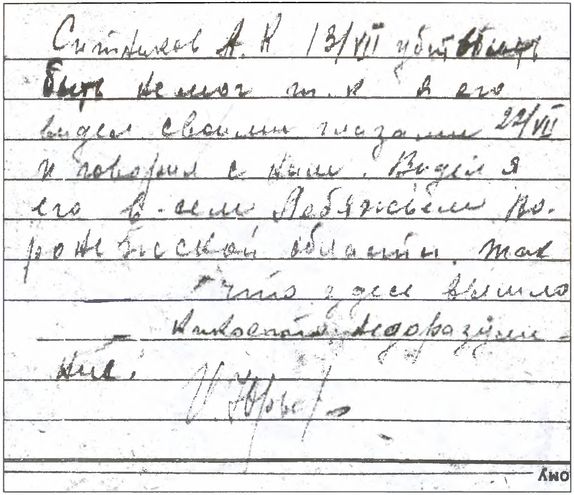 Ситников А. К 13/VII убит
быть не мог т. к я его
видел своими глазами 22/VII
и говорил с ним. Видел я
его в селе Лебяжьем Во-
ронежской области. Так
что здесь вышло
недоразуме-
ние.
ому